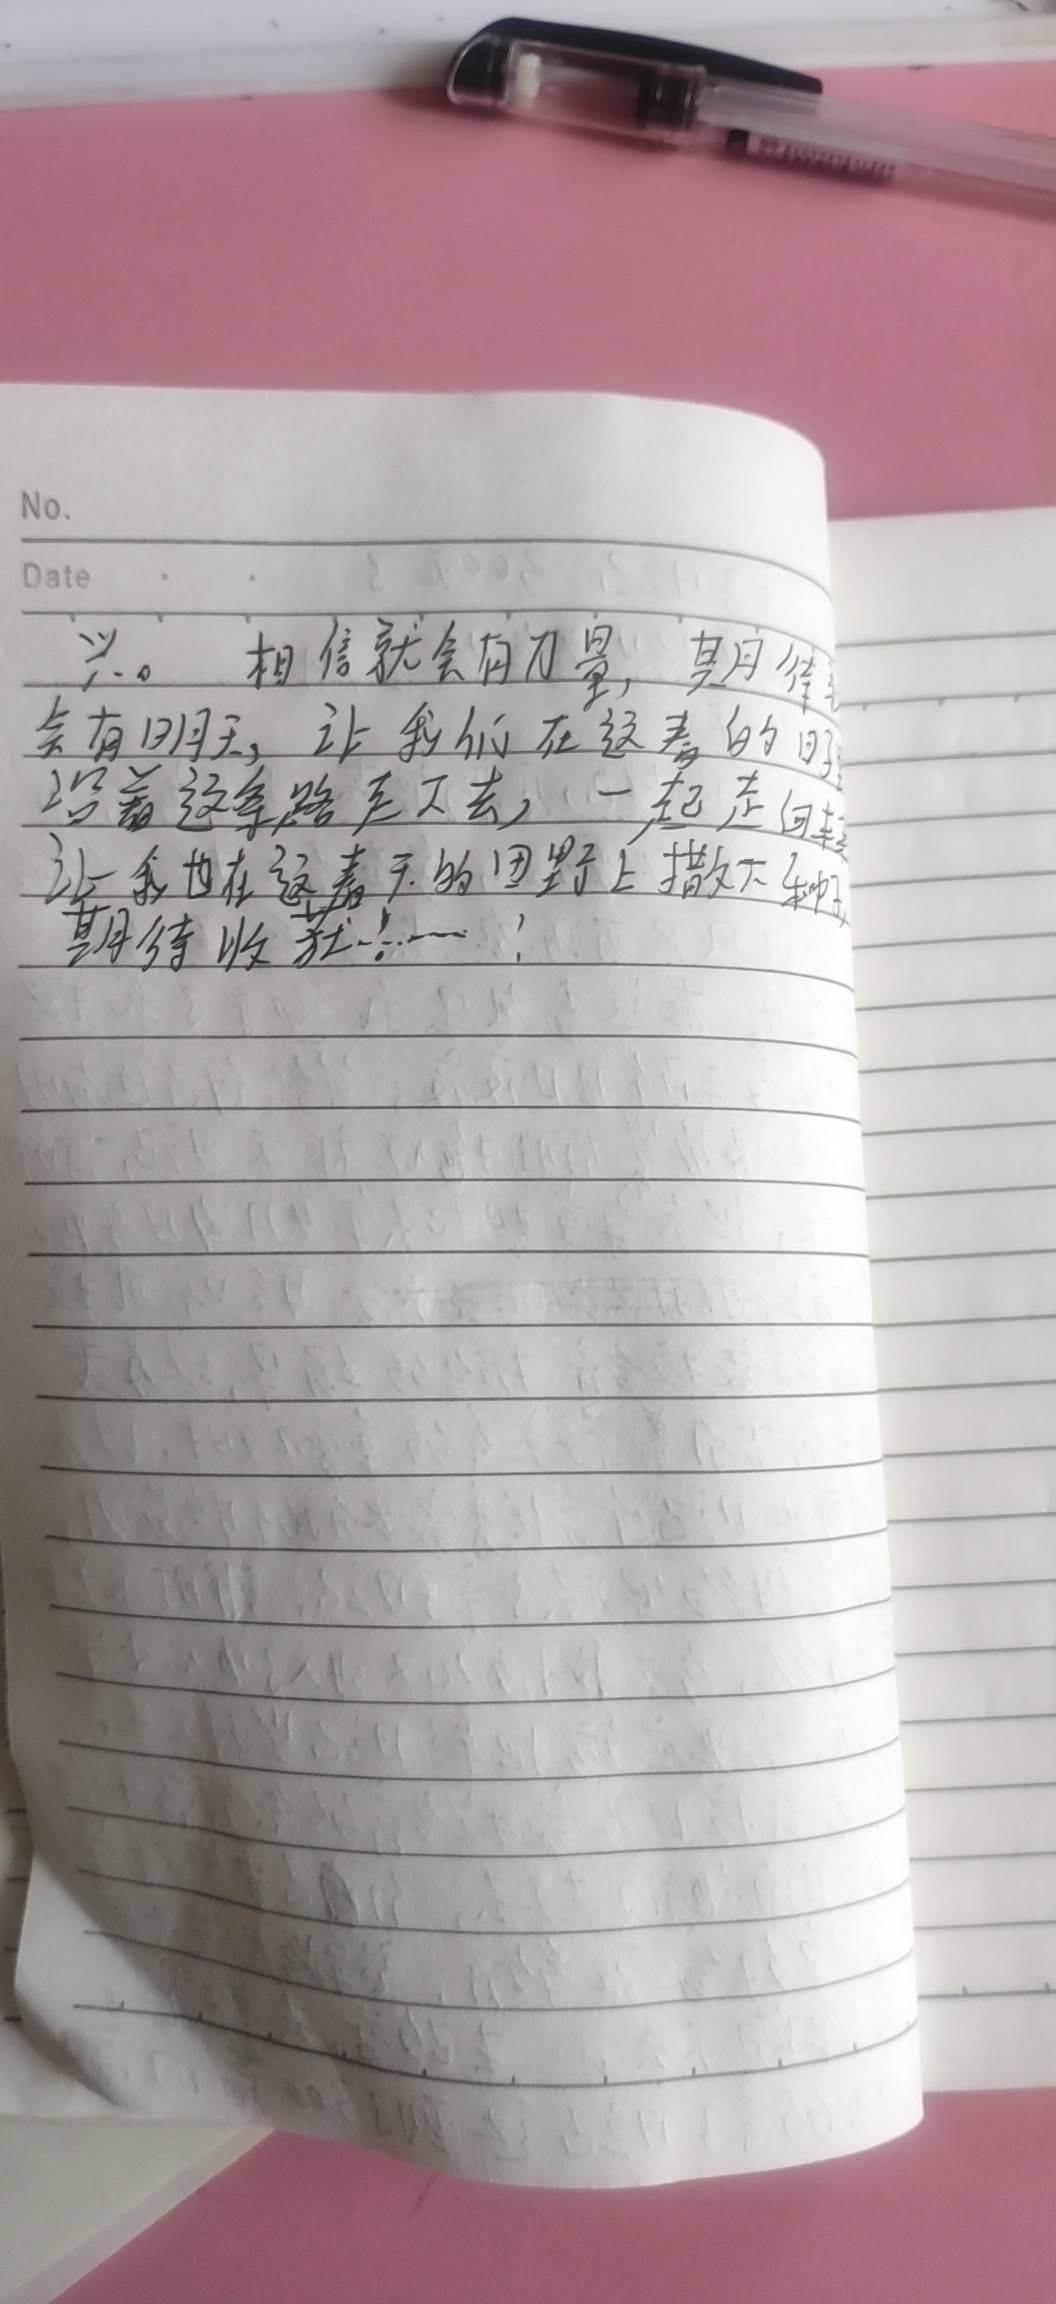 No.
Date
兴。 相信就会有力量，期待
会有明天，让我们在这春的日子
沿着这条路走下去，一起走向
让我也在这春天的田野上撒下种子，
期待收获！……！